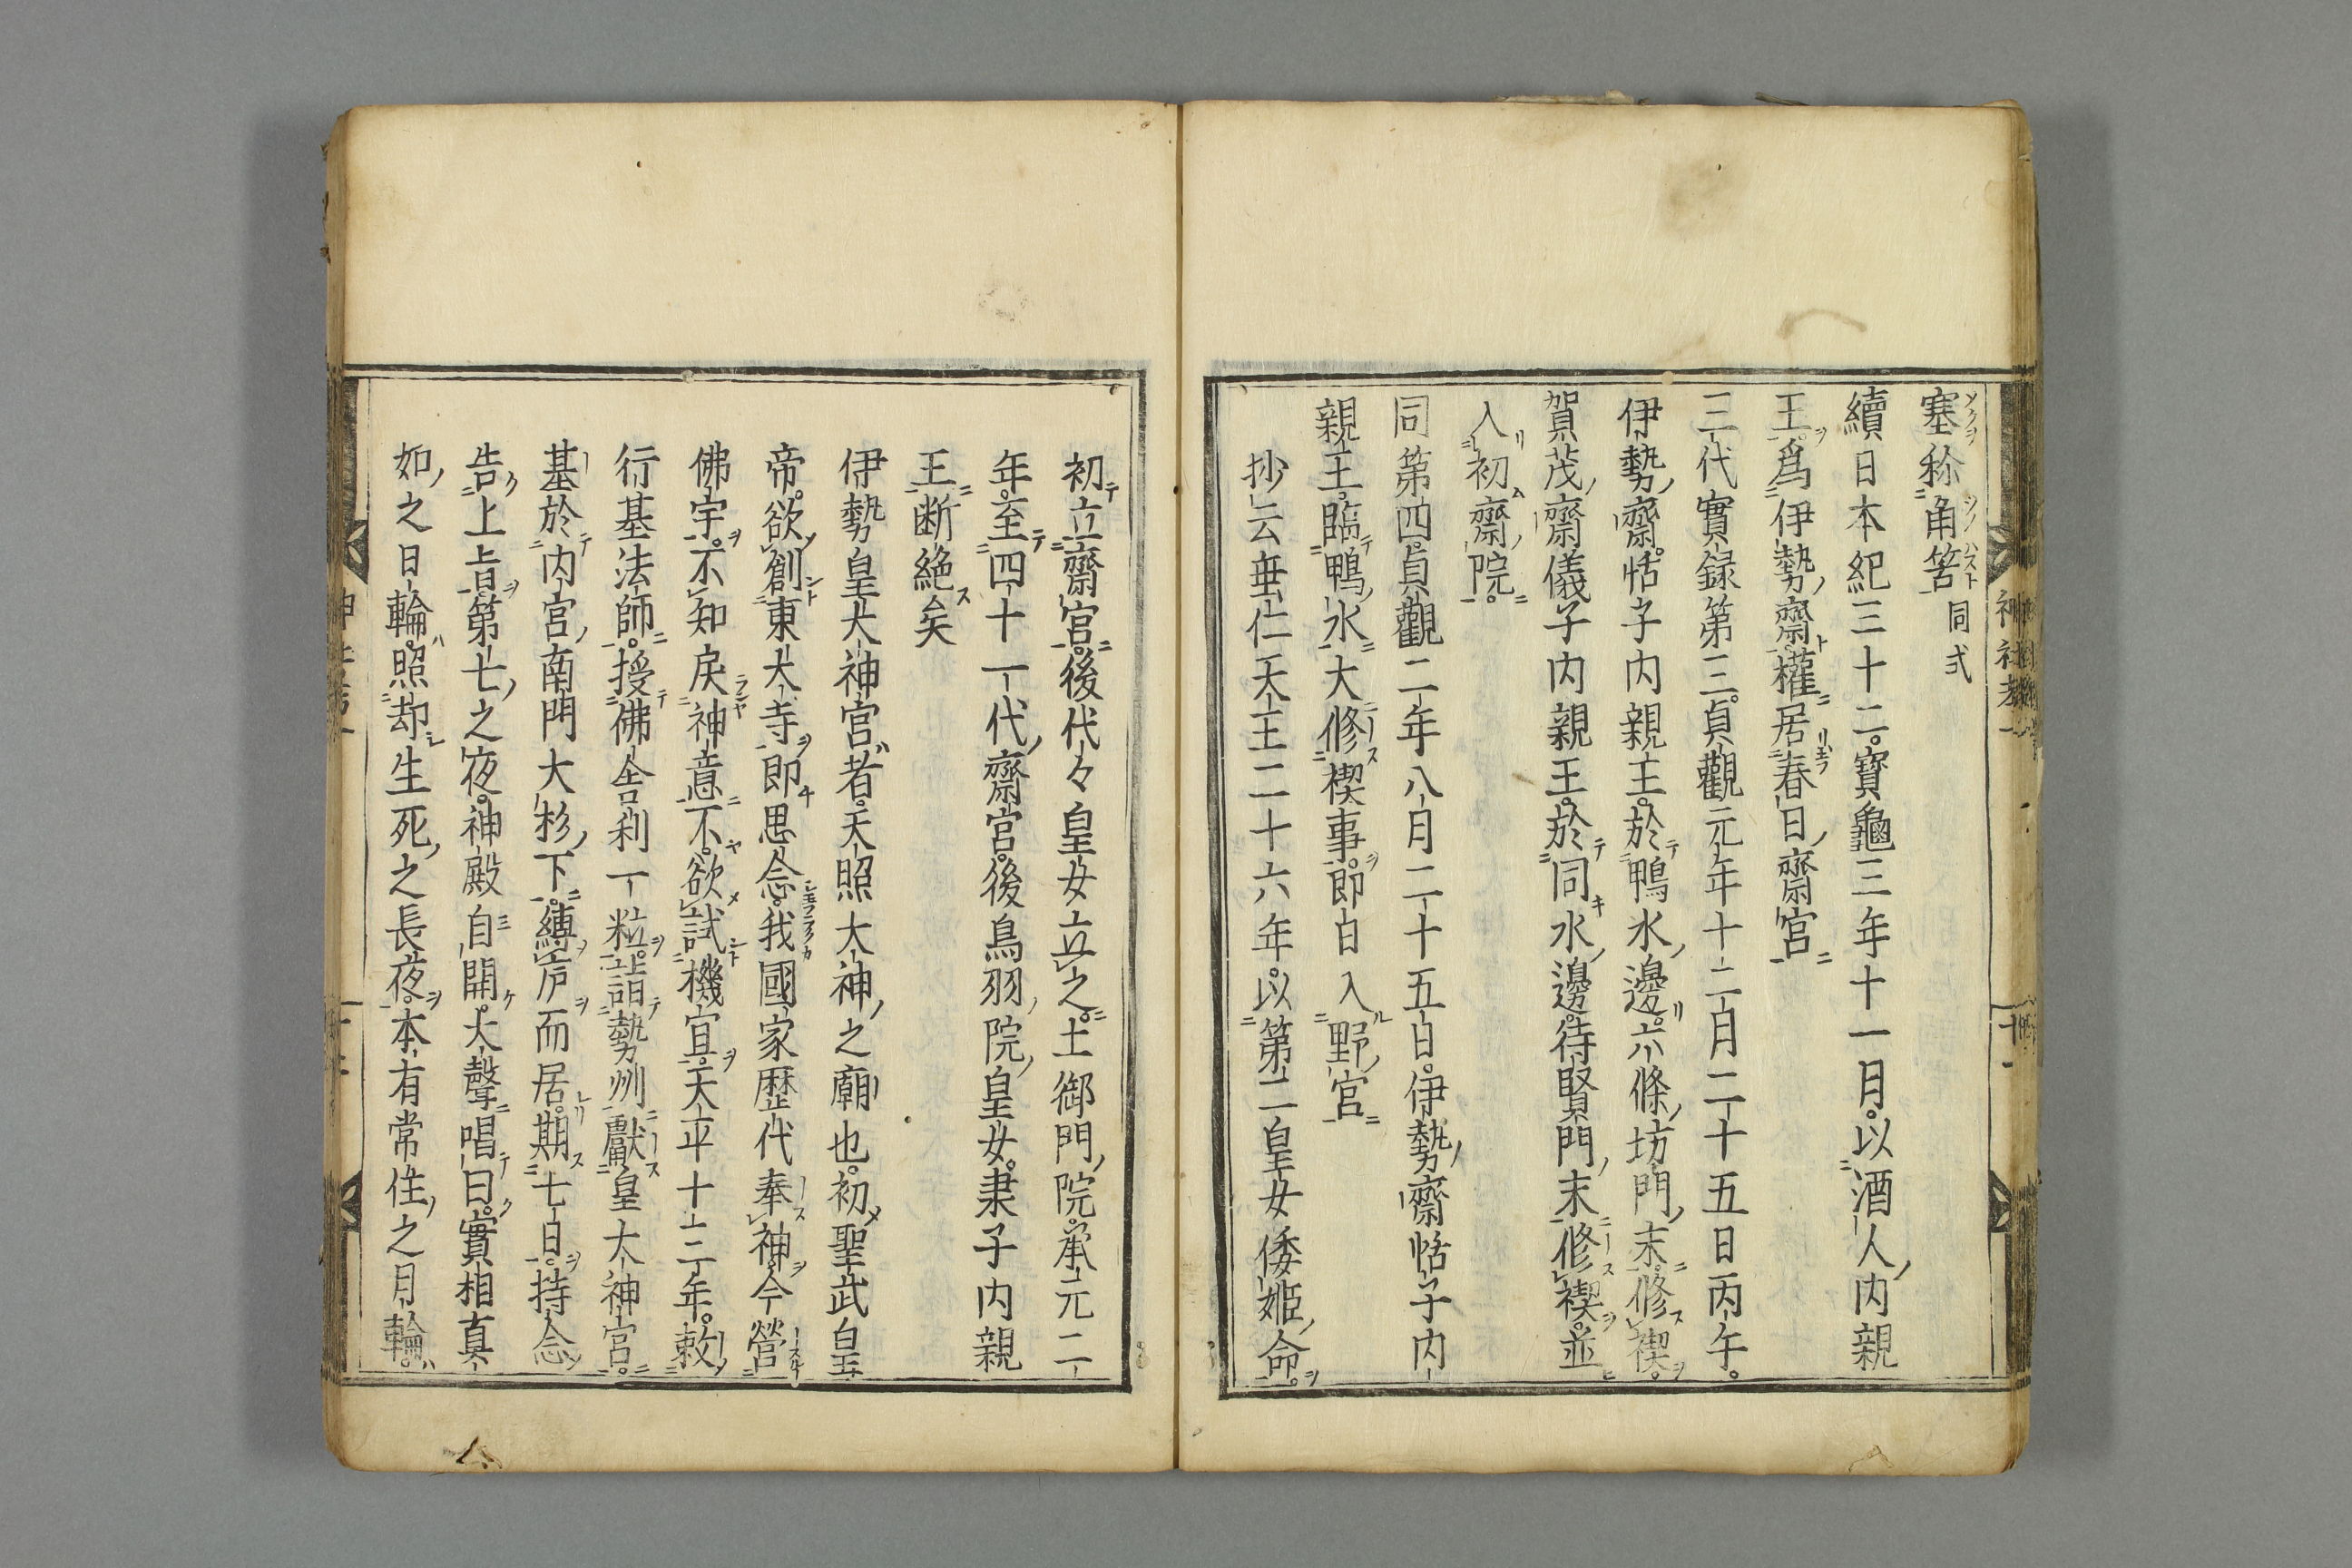 塞称甬筈同弍
續日本紀三十二。寳龜三年十一月。以酒人内親
王。爲伊勢齋。權居春日齋宮
三代實録第三。貞觀元年十二月二十五日丙午。
伊勢齋。恬子内親王。於鴨水邊。六條坊門末。修禊。
賀茂齋儀子内親王。於同水邊。待賢門末修禊。並
入初齋院。
同第四。貞觀二年八月二十五日。伊勢齋恬子内
親王。臨鴨水大修禊事。即白入野宮
抄云垂仁天王二十六年。以第二皇女倭姫命。
初立齋宮。後代々皇女立之。土御門院。承元二
年。至四十一代齋宮。後鳥羽院皇女。粛子内親
王断絶矣
伊勢皇太神宮者。天照大神之廟也。初聖武皇
帝。欲創東大寺即思念。我國家歴代奉神。今營
佛宇。不知戾神意不。欲試機宜。天平十二年。敕
行基法師。授佛舎利一粒。詣勢州獻皇大神宮。
基於内宮南門大杉下。縛庐而居。期七日。持念
告上旨。第七之夜。神殿自開。大聲唱曰。實相真
如之日輪。照却生死之長夜。本有常住之月輪。
神社考一
十一